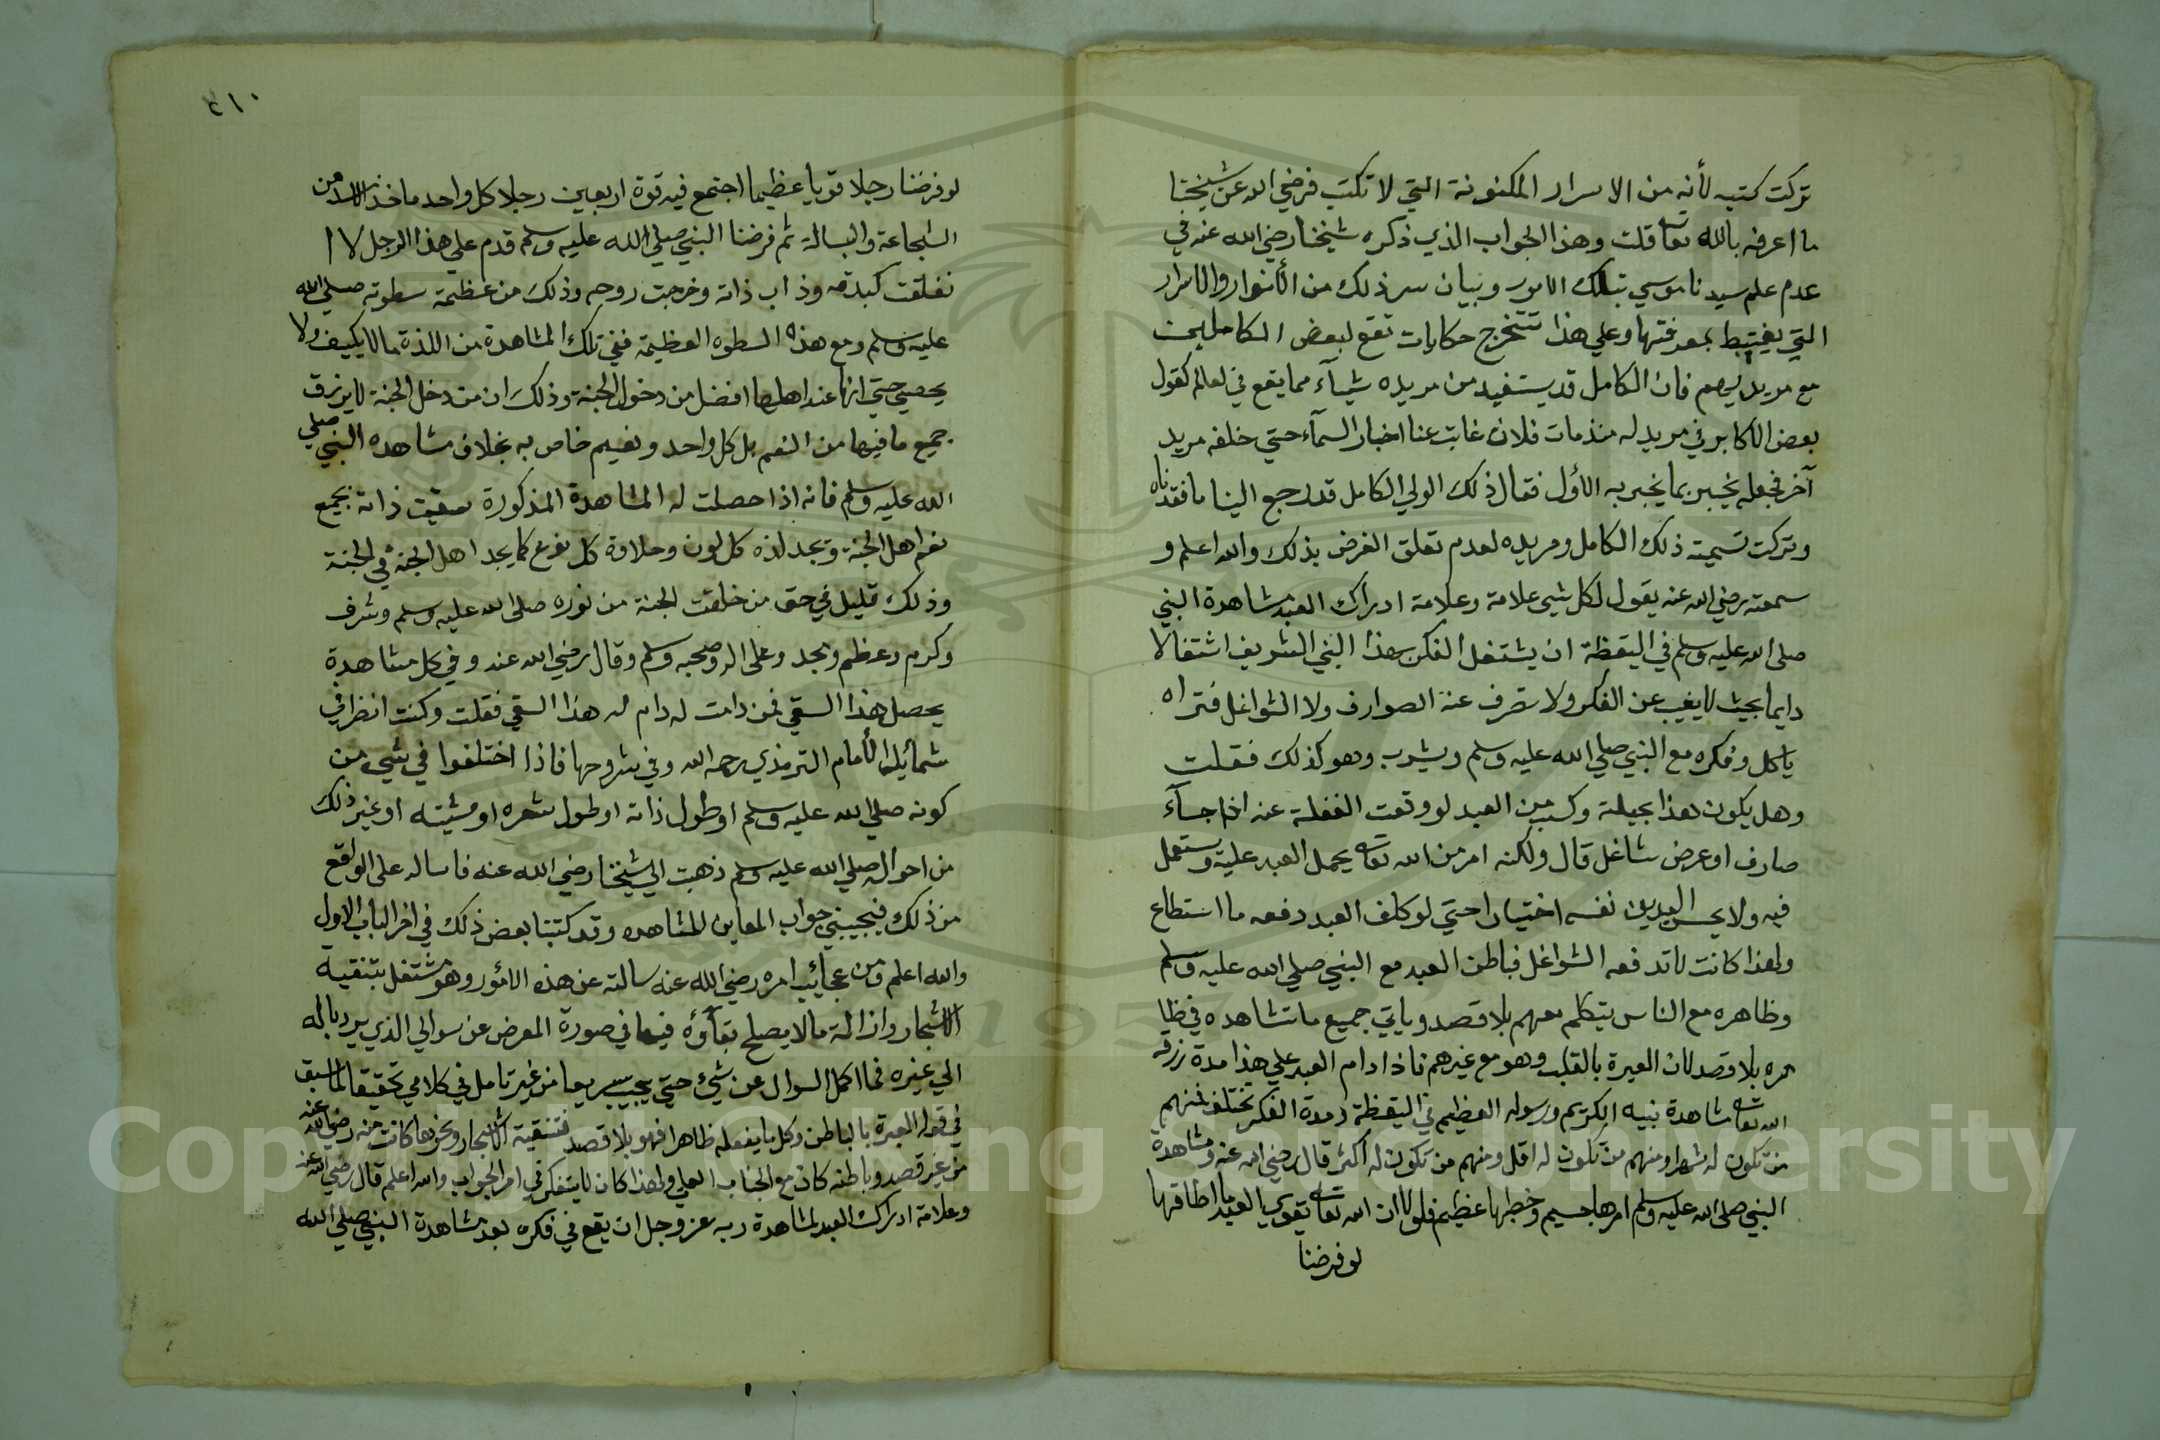 تركت كتبه لأنه من الاسرار المكنونة التي لا تكتب فرضي الله عن شيخنا
ما اعرفه بالله تعا قلت وهذا الجواب الذي ذكره شيخنا رضي الله عنه في
عدم علم سيدنا موسي بتلك الامور وبيان سر ذلك من الأنوار والاسرار
التي يغتبط بمعرفتها وعلي هذا تتخرج حكايات تقع لبعض الكاملين
مع مريديهم فان الكامل قد يستفيد من مريده شيأ مما يقع في العالم كقول
بعض الاكابر في مريد له منذ مات فلان غابت عنا اخبار السمآء حتي خلفه مريد
آخر فجعله يخبر بما يخبر به الأول فقال ذلك الولي الكامل قد رجع الينا ما فقدناه
وتركت تسمية ذلك الكامل ومريده لعدم تعلق الغرض بذلك والله اعلم و
سمعته رضي الله عنه يقول لكل شيى علامة وعلامة ادراك العبد مشاهدة النبي
صلى الله عليه وسلم في اليقظة ان يشتغل الفكر بهذا النبي الشريف اشتغالا
دايما بحيث لا يغيب عن الفكر ولا تصرف عنه الصوارف ولا الشواغل فتراه
ياكل وفكره مع النبي صلي الله عليه وسلم ويشرب وهو كذلك فقلت
وهل يكون هذا بحيلة وكسب من العبد لو وقعت الغفلة عنه اذا جآء
صارف او عرض شاغل قال ولكنه امر من الله تعا يحمل العبد عليه ويستعمل
فيه ولا يحس العبد من نفسه اختيارا حتي لو كلف العبد دفعه ما استطاع
ولهذا كانت لا تدفعه الشواغل فباطن العبد مع النبي صلي الله عليه وسلم
وظاهره مع الناس يتكلم معهم بلا قصد وياتي جميع ما تشاهده في ظا
هره بلا قصد لان العبرة بالقلب وهو مع غيرهم فاذا دام العبد علي هذا مدة رزقه
الله تعا مشاهدة نبيه الكريم ورسوله العظيم في اليقظة ومدة الفكر تختلف فمنهم
من تكون له شهرا ومنهم من تكون له اقل ومنهم من تكون له أكثر قال رضي الله عنه ومشاهدة
النبي صلى الله عليه وسلم امرها جسيم وخطبها عظيم فلولا ان الله تعا يقوي العبد ما اطاقها
لو فرضنا
٢١٠
لو فرضنا رجلا قويا عظيما اجتمع فيه قوة اربعين رجلا كل واحد ماخذ الاسد من
الشجاعة والبسالة ثم فرضنا النبي صلي الله عليه وسلم قدم علي هذا الرجل لا ا
نفلقت كبدته وذاب ذاته وخرجت روحه وذلك من عظيمة سطوته صلي الله
عليه وسلم ومع هذه السطوه العظيمة ففي تلك المشاهدة من اللذة ما لا يكيف ولا
يحصي حتي انها عند اهلها افضل من دخول الجنة وذلك ان من دخل الجنة لا يرزق
جميع ما فيها من النعم بل كل واحد ونعيم خاص به بخلاف مشاهده النبي صلي
الله عليه وسلم فانه اذا حصلت له المشاهدة المذكورة سقيت ذاته بجميع
نعم اهل الجنة وتجد لذه كل لون وحلاوة كل نوع كما يجد اهل الجنة في الجنة
وذلك قليل في حق من خلقت الجنة من نوره صلى الله عليه وسلم وشرف
وكرم وعظم ومجد وعلى اله وصحبه وسلم وقال رضي الله عنه وفي كل مشاهدة
يحصل هذا السقي فمن دامت له دام له هذا السقي فقلت وكنت انظر في
شمايل الأمام الترمذي رحمه الله وفي شروحها فاذا اختلفوا في شيى من
كونه صلي الله عليه وسلم او طول ذاته او طول شعره او مشيته او غير ذلك
من احواله صلي الله عليه وسلم ذهبت الي شيخنا رضي الله عنه فاساله على الواقع
من ذلك فيجيبني جواب المعاين للمشاهده وقد كتبنا بعض ذلك في اخر الباب الاول
والله اعلم ومن عجائب امره رضي الله عنه سالته عن هذه الامور وهو مشتغل بتنقية
الاشجار وازالة ما لا يصلح بقآؤه فيها في صورة المعرض عن سوالي الذي يرد باله
الي غيره فما اكمل السوال عن شيء حتي يجيب سريعا من غير تامل في كلامي تحقيقا لما سبق
في قوله العبرة بالباطن وكل ما يفعله ظاهرا فهو بلا قصد فتنقية الاشجار ونحوها كانت منه رضي الله عنه
من غير قصد وباطنه كان مع الجناب العلي ولهذا كان لا يتفكر في امر الجواب والله اعلم قال رضي الله عنه
وعلامة ادراك العبد لمشاهدة ربه عز وجل ان يقع في فكره بعد مشاهدة النبي صلي الله
Copyright © King Saud University
1957